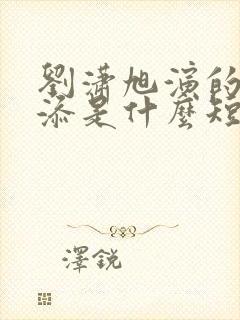 劉瀟旭演的
添是什麼短
澤銳